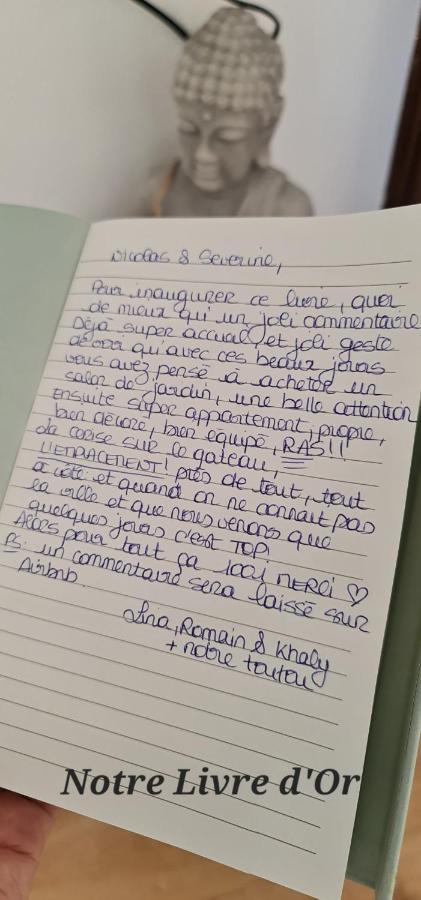 Nicolas & Severine,
Pour inaugurer ce livre, quoi
de mieux qu'un joli commentaire
Déjà super accueil et joli geste
de voir qu'avec ces beaux jours
vous avez pensé à acheter un
salon de jardin, une belle attention
Ensuite super appartement, propre,
bien décoré, bien équipé, RAS!!
la cerise sur le gateau,
L'EMPLACEMENT! près de tout, tout
à côté et quand on ne connait pas
la ville et que nous venons que
quelques jours c'est TOP!
Alors pour tout ça 100x MERCI ♡
PS: un commentaire sera laissé sur
Airbnb
Lina, Romain & Khaly
+ notre toutou
Notre Livre d'Or